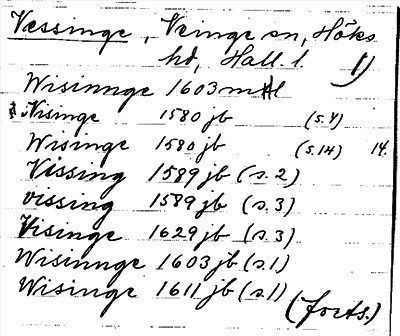 Vessinge, Veinge sn, Höks
hd, Hall. l. 1)
Wisinnge 1603 mtl
Nisinge 1580 jb (s.4)
Wisinge 1580 jb (s.14) 14.
Vissing 1589 jb (s.2)
vissing 1589 jb (s.3)
Visinge 1629 jb (s.3)
Wisinnge 1603 jb (s.1)
Wisinge 1611 jb (s.1)
(forts.)